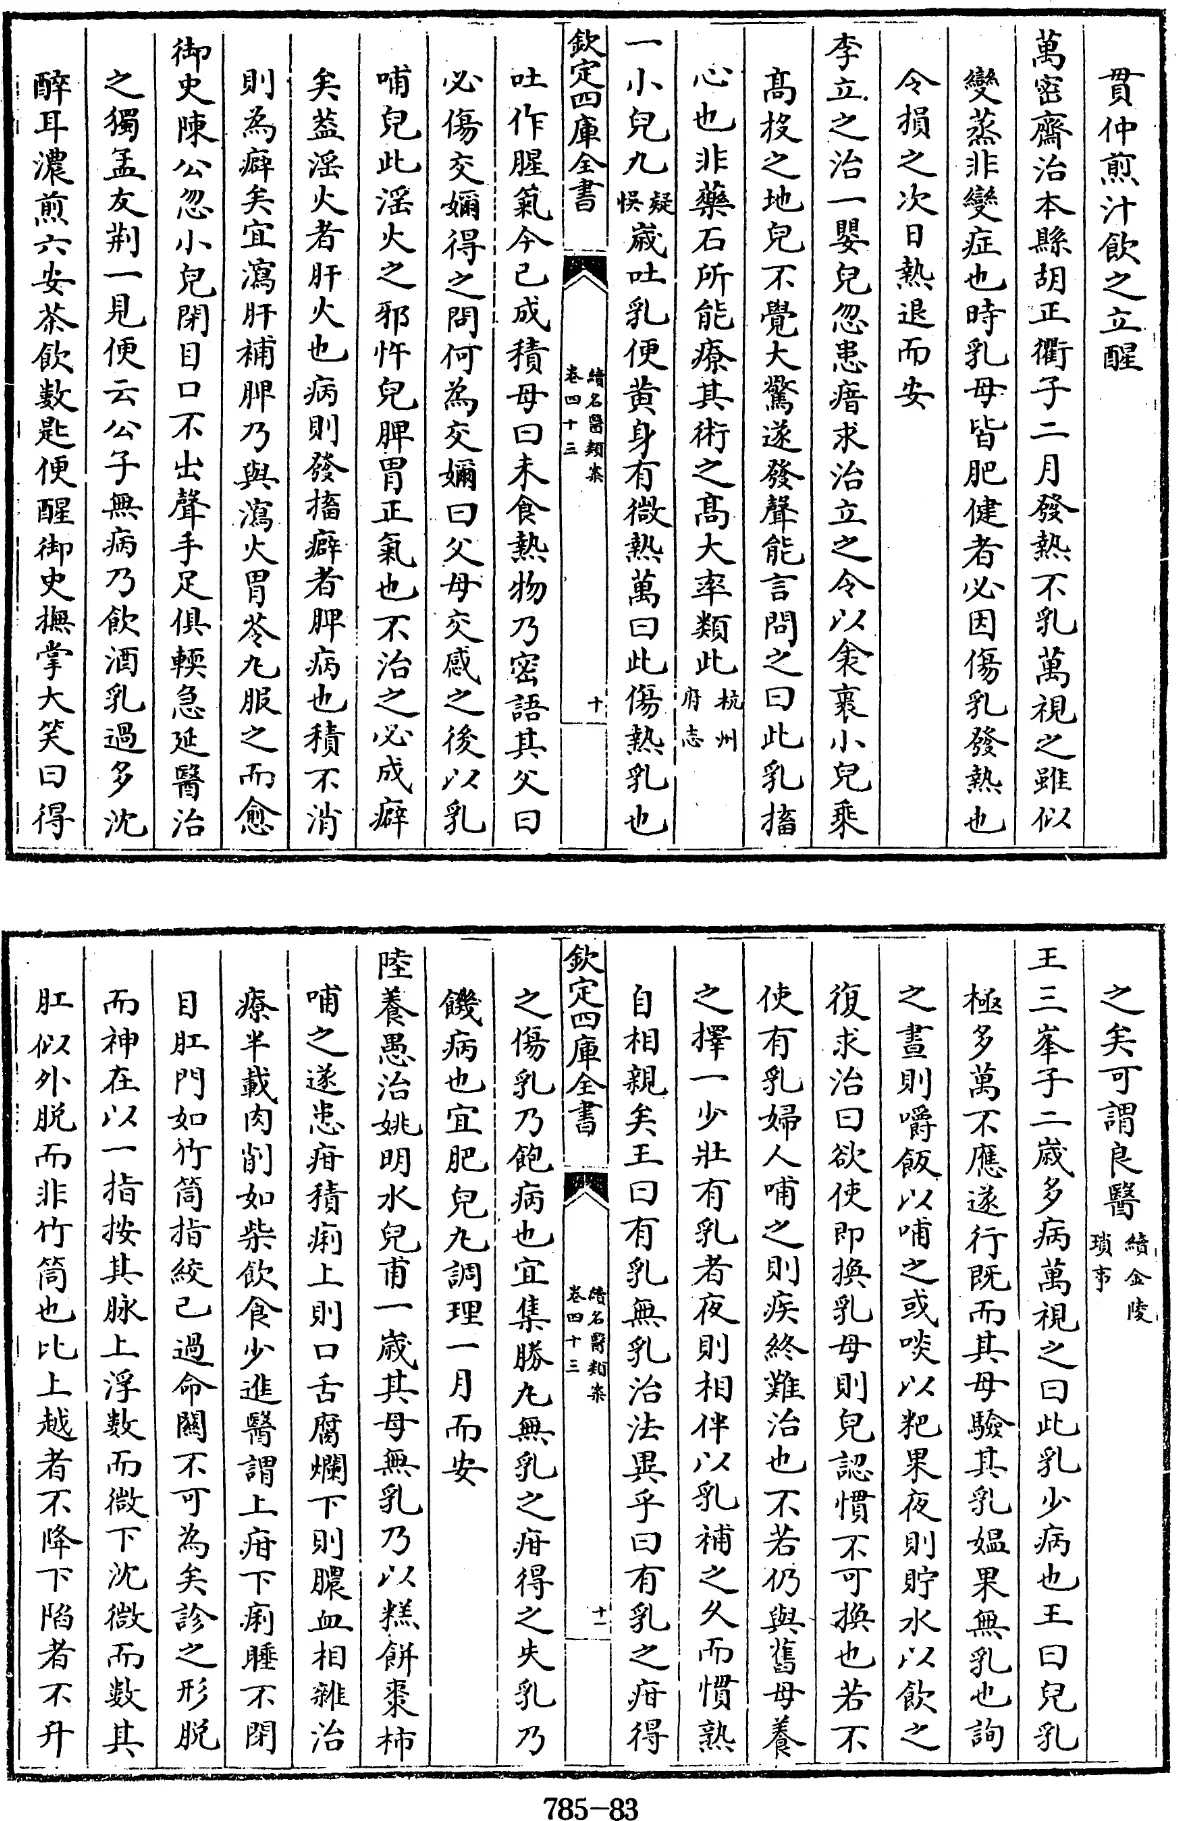 貫仲煎汁飲之立醒
萬密齋治本縣胡正衢子二月發熱不乳萬視之雖似
變蒸非變症也時乳母皆肥健者必因傷乳發熱也
令損之次日熱退而安
李立之治一嬰兒忽患瘖求治立之令以衾裹小兒乘
高投之地兒不覺大驚遂發聲能言問之曰此乳搐
心也非藥石所能療其術之高大率類此杭州府志
一小兒九疑悞歲吐乳便黄身有微熱萬曰此傷熱乳也
欽定四庫全書
續名醫類案
卷四十三
十
吐作腥氣今已成積母曰未食熱物乃密語其父曰
必傷交嬭得之問何為交嬭曰父母交感之後以乳
哺兒此淫火之邪忤兒脾胃正氣也不治之必成癖
矣葢淫火者肝火也病則發搐癖者脾病也積不消
則為癖矣宜瀉肝補脾乃與瀉火胃苓丸服之而愈
御史陳公忽小兒閉目口不出聲手足俱輭急延醫治
之獨孟友荆一見便云公子無病乃飲酒乳過多沈
醉耳濃煎六安茶飲數匙便醒御史撫掌大笑曰得
之矣可謂良醫續金陵瑣事
王三峯子二歲多病萬視之曰此乳少病也王曰兒乳
極多萬不應遂行既而其母驗其乳媼果無乳也詢
之晝則嚼飯以哺之或啖以粑果夜則貯水以飲之
復求治曰欲使即換乳母則兒認慣不可換也若不
使有乳婦人哺之則疾終難治也不若仍與舊母養
之擇一少壯有乳者夜則相伴以乳補之久而慣熟
自相親矣王曰有乳無乳治法異乎曰有乳之疳得
欽定四庫全書
續名醫類案
卷四十三
十一
之傷乳乃飽病也宜集勝丸無乳之疳得之失乳乃
饑病也宜肥兒丸調理一月而安
陸養愚治姚明水兒甫一歲其母無乳乃以糕餅棗柿
哺之遂患疳積痢上則口舌腐爛下則膿血相雜治
療半載肉削如柴飲食少進醫謂上疳下痢睡不閉
目肛門如竹筒指紋已過命關不可為矣診之形脱
而神在以一指按其脉上浮數而微下沈微而數其
肛似外脱而非竹筒也比上越者不降下陷者不升
785-83